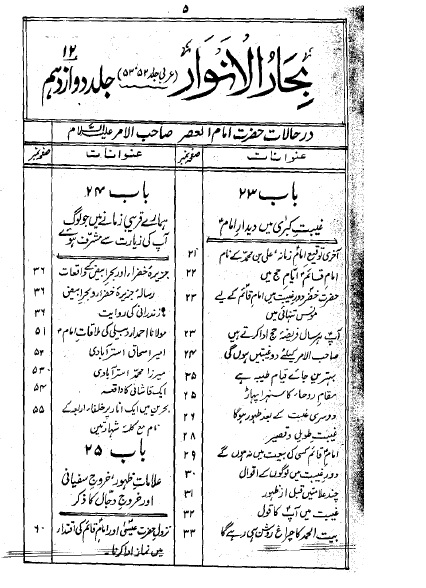 ۵
بحار الانوار (عربی جلد ۵۲، ۵۳) جلد دوازدہم ۱۲
در حالات حضرت امام العصر صاحب الامر علیہ السلام
عنوانات صفحہ نمبر
باب ۲۳
غیبتِ کبریٰ میں دیدارِ امامؑ
آخری توقیع امام زمانہؑ علی بن محمد کے نام ۲۱
امام قائمؑ ایام حج میں ۲۲
حضرت خضرؑ دورِ غیبت میں امام قائمؑ کے لیے ۲۳
مؤنسِ تنہائی ہیں
آپؑ ہر سال فریضۂ حج ادا کرتے ہیں ۲۳
صاحب الامر کیلئے دو غیبتیں ہوں گی ۲۴
بہترین جائے قیام طیبہ ہے ۲۵
مقام روحاء کا سنہرا پہاڑ ۲۵
دوسری غیبت کے بعد ظہور ہوگا ۲۶
غیبت طویل و قصیر ۲۸
امام قائم کسی کی بیعت میں نہ ہوں گے ۲۹
دورِ غیبت میں لوگوں کے اقوال ۳۰
چند علامتیں قبل از ظہور ۳۱
غیبت میں آپؑ کا قول ۳۲
بیت الحمد کا چراغ روشن ہی رہے گا ۳۳
عنوانات صفحہ نمبر
باب ۲۴
ہمارے قریبی زمانے میں جو لوگ
آپ کی زیارت سے مشرف ہوئے
جزیرۂ خضراء اور بحر ابیض کے واقعات ۳۶
رسالہ جزیرۂ خضراء و بحر ابیض ۳۶
مازندرانی کی روایت ۳۶
مولانا احمد اردبیلی کی ملاقات امامؑ ۵۱
امیر اسحاق استرآبادی ۵۲
میرزا محمد استرآبادی ۵۳
ایک قاشانی کا واقعہ ۵۴
بحرین میں ایک انار پر خلفاء اربعہ کے ۵۵
نام مع کلمۂ شہادتین
باب ۲۵
علاماتِ ظہور، خروجِ سفیانی
اور خروجِ دجال کا ذکر
نزولِ حضرت عیسیٰؑ اور امام قائم کی اقتدار ۶۰
میں نماز ادا کرنا۔